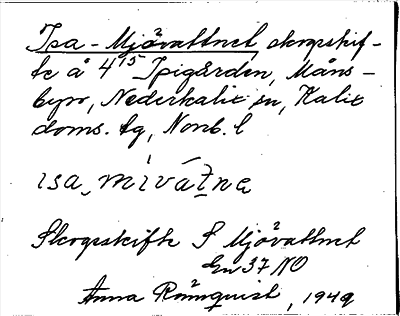 Isa-Mjövattnet skogsskif-
te å 4¹⁵ Ipigården, Måns-
byn, Nederkalix sn, Kalix
doms. tg, Norrb. l
ısa͜ mìvát̲nə
Skogsskifte S Mjövattnet
En 37 NO
Anna Rönnquist, 1949